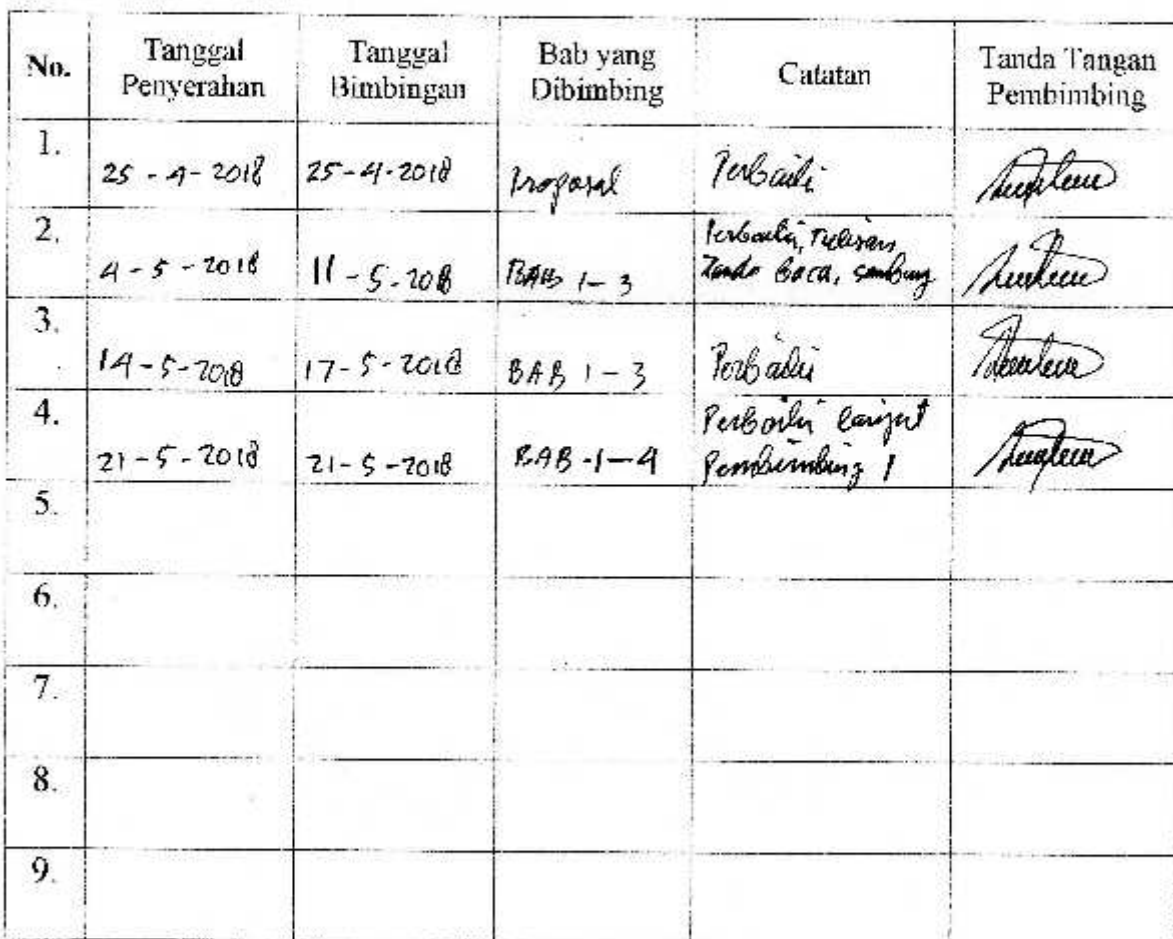 No. Tanggal Penyerahan Tanggal Bimbingan Bab yang Dibimbing Catatan Tanda Tangan Pembimbing
1. 25 - 4 - 2018 25 - 4 - 2018 Proposal Perbaiki
2. 4 - 5 - 2018 11 - 5 - 2018 BAB 1 - 3 Perbaiki, Tulisan,
Tanda Baca, sambung
3. 14 - 5 - 2018 17 - 5 - 2018 BAB 1 - 3 Perbaiki
4. 21 - 5 - 2018 21 - 5 - 2018 BAB - 1 - 4 Perbaiki lanjut
Pembimbing 1
5.
6.
7.
8.
9.